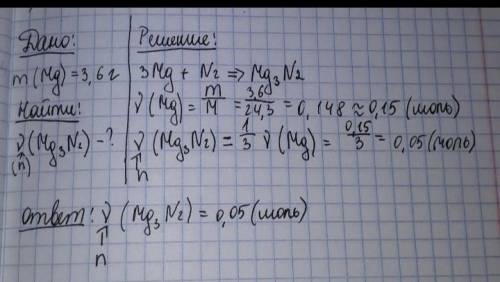 Дано:
m(Mg)=3,6 г
Найти:
ν(Mg₃N₂)-?
(n)
Решение:
3Mg + N₂ => Mg₃N₂
ν(Mg) = m/M = 3,6/24,3 = 0,148 ≈ 0,15 (моль)
ν(Mg₃N₂) = 1/3 ν(Mg) = 0,15/3 = 0,05 (моль)
n
Ответ: ν(Mg₃N₂) = 0,05 (моль)
n